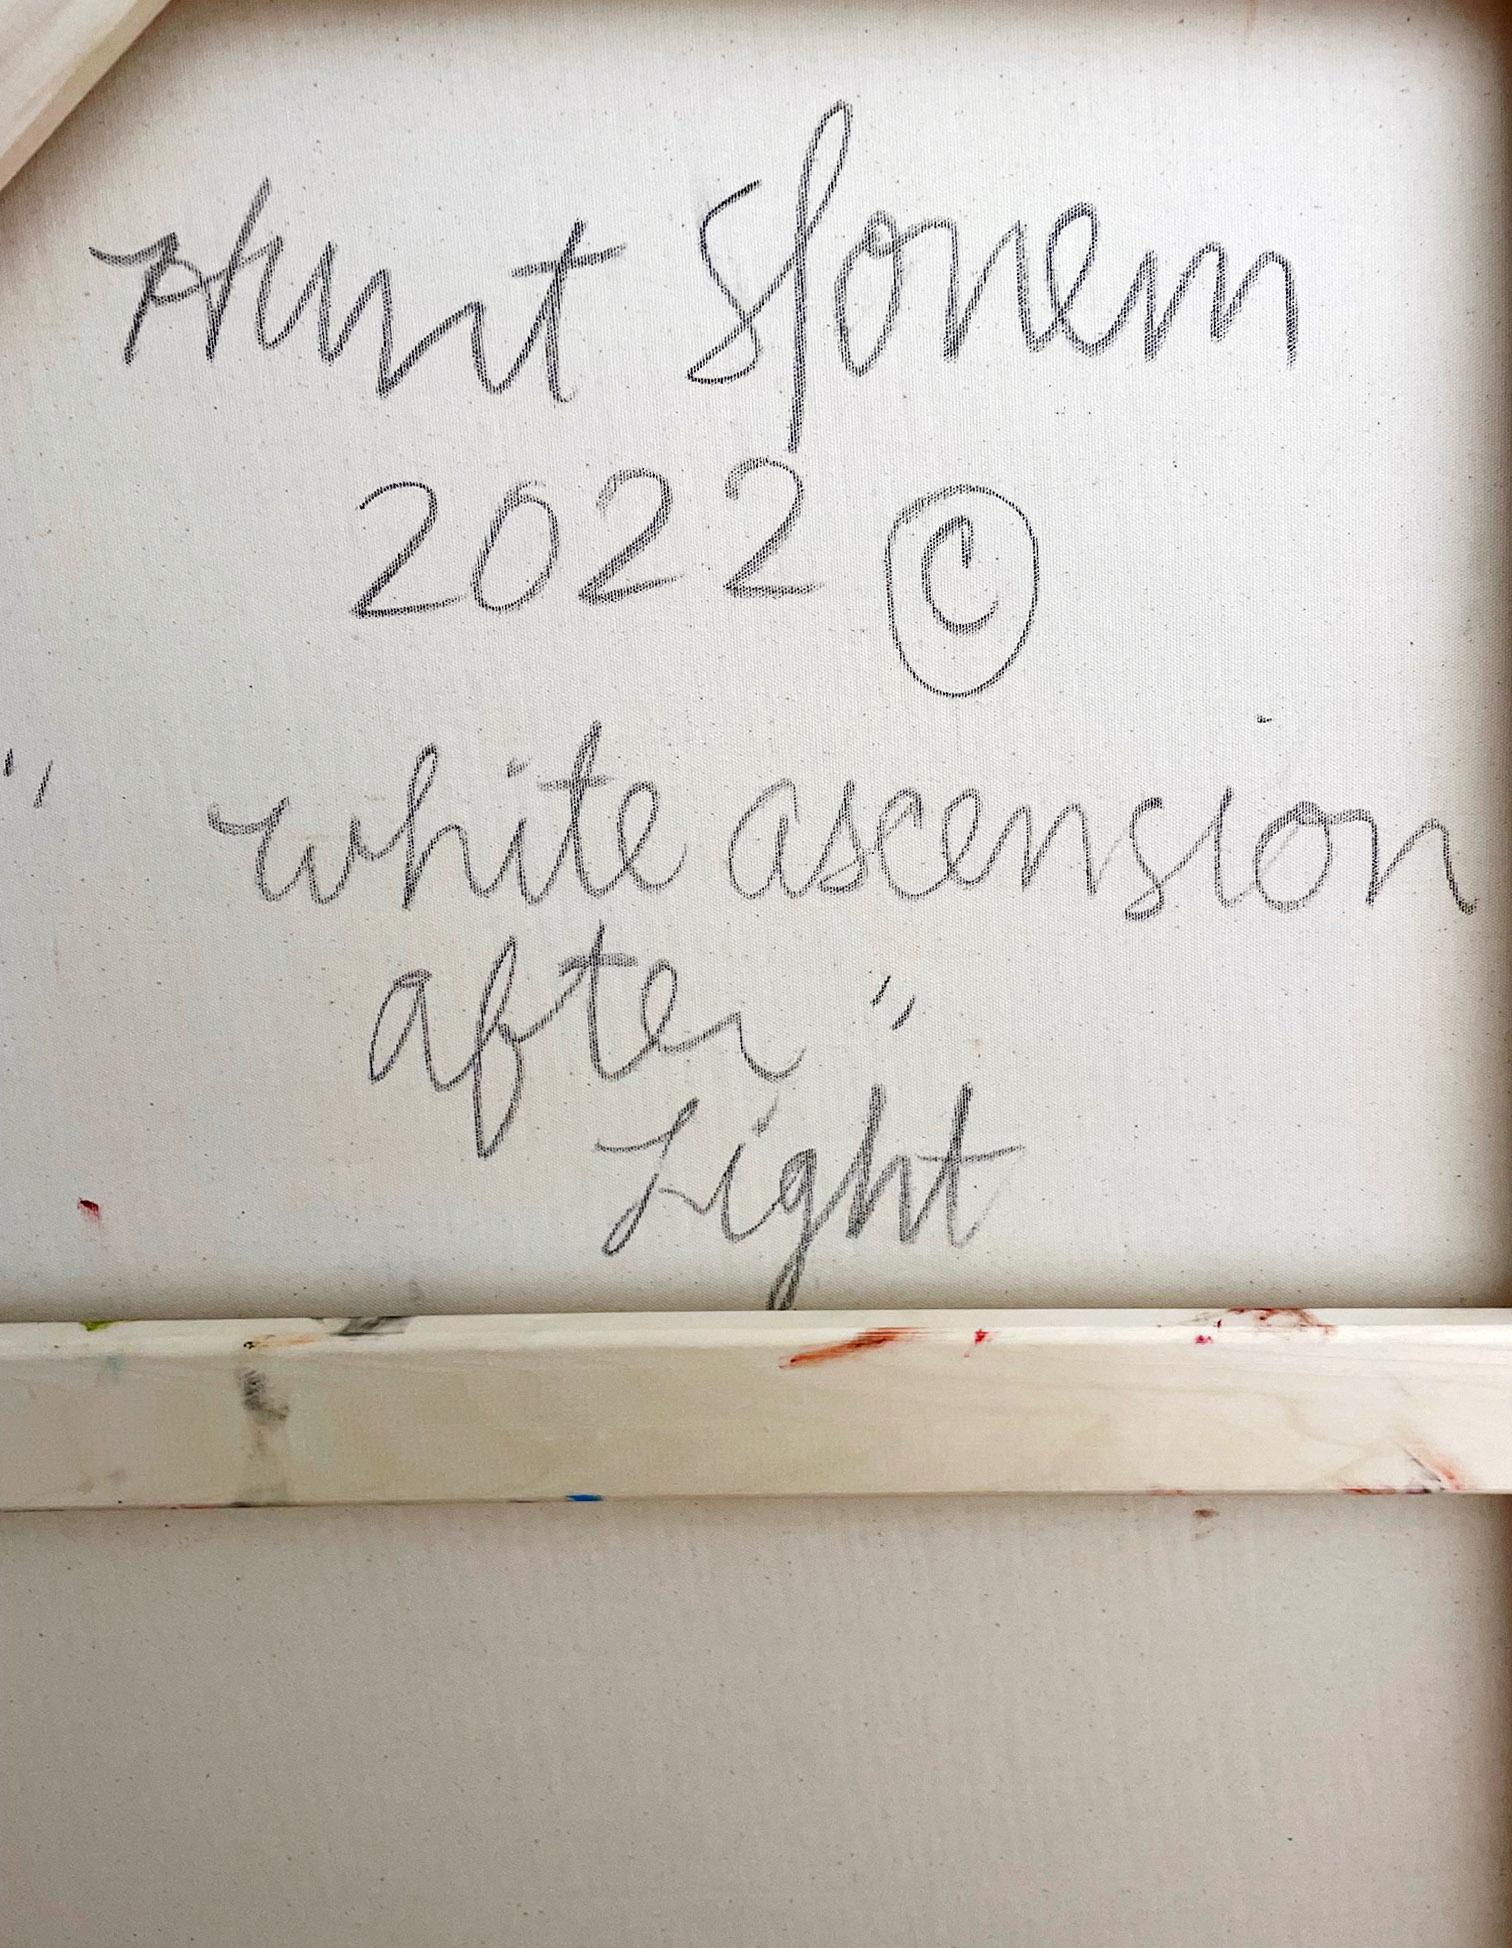 Hunt Slonem
2022 ©
" white ascension
after "
Light